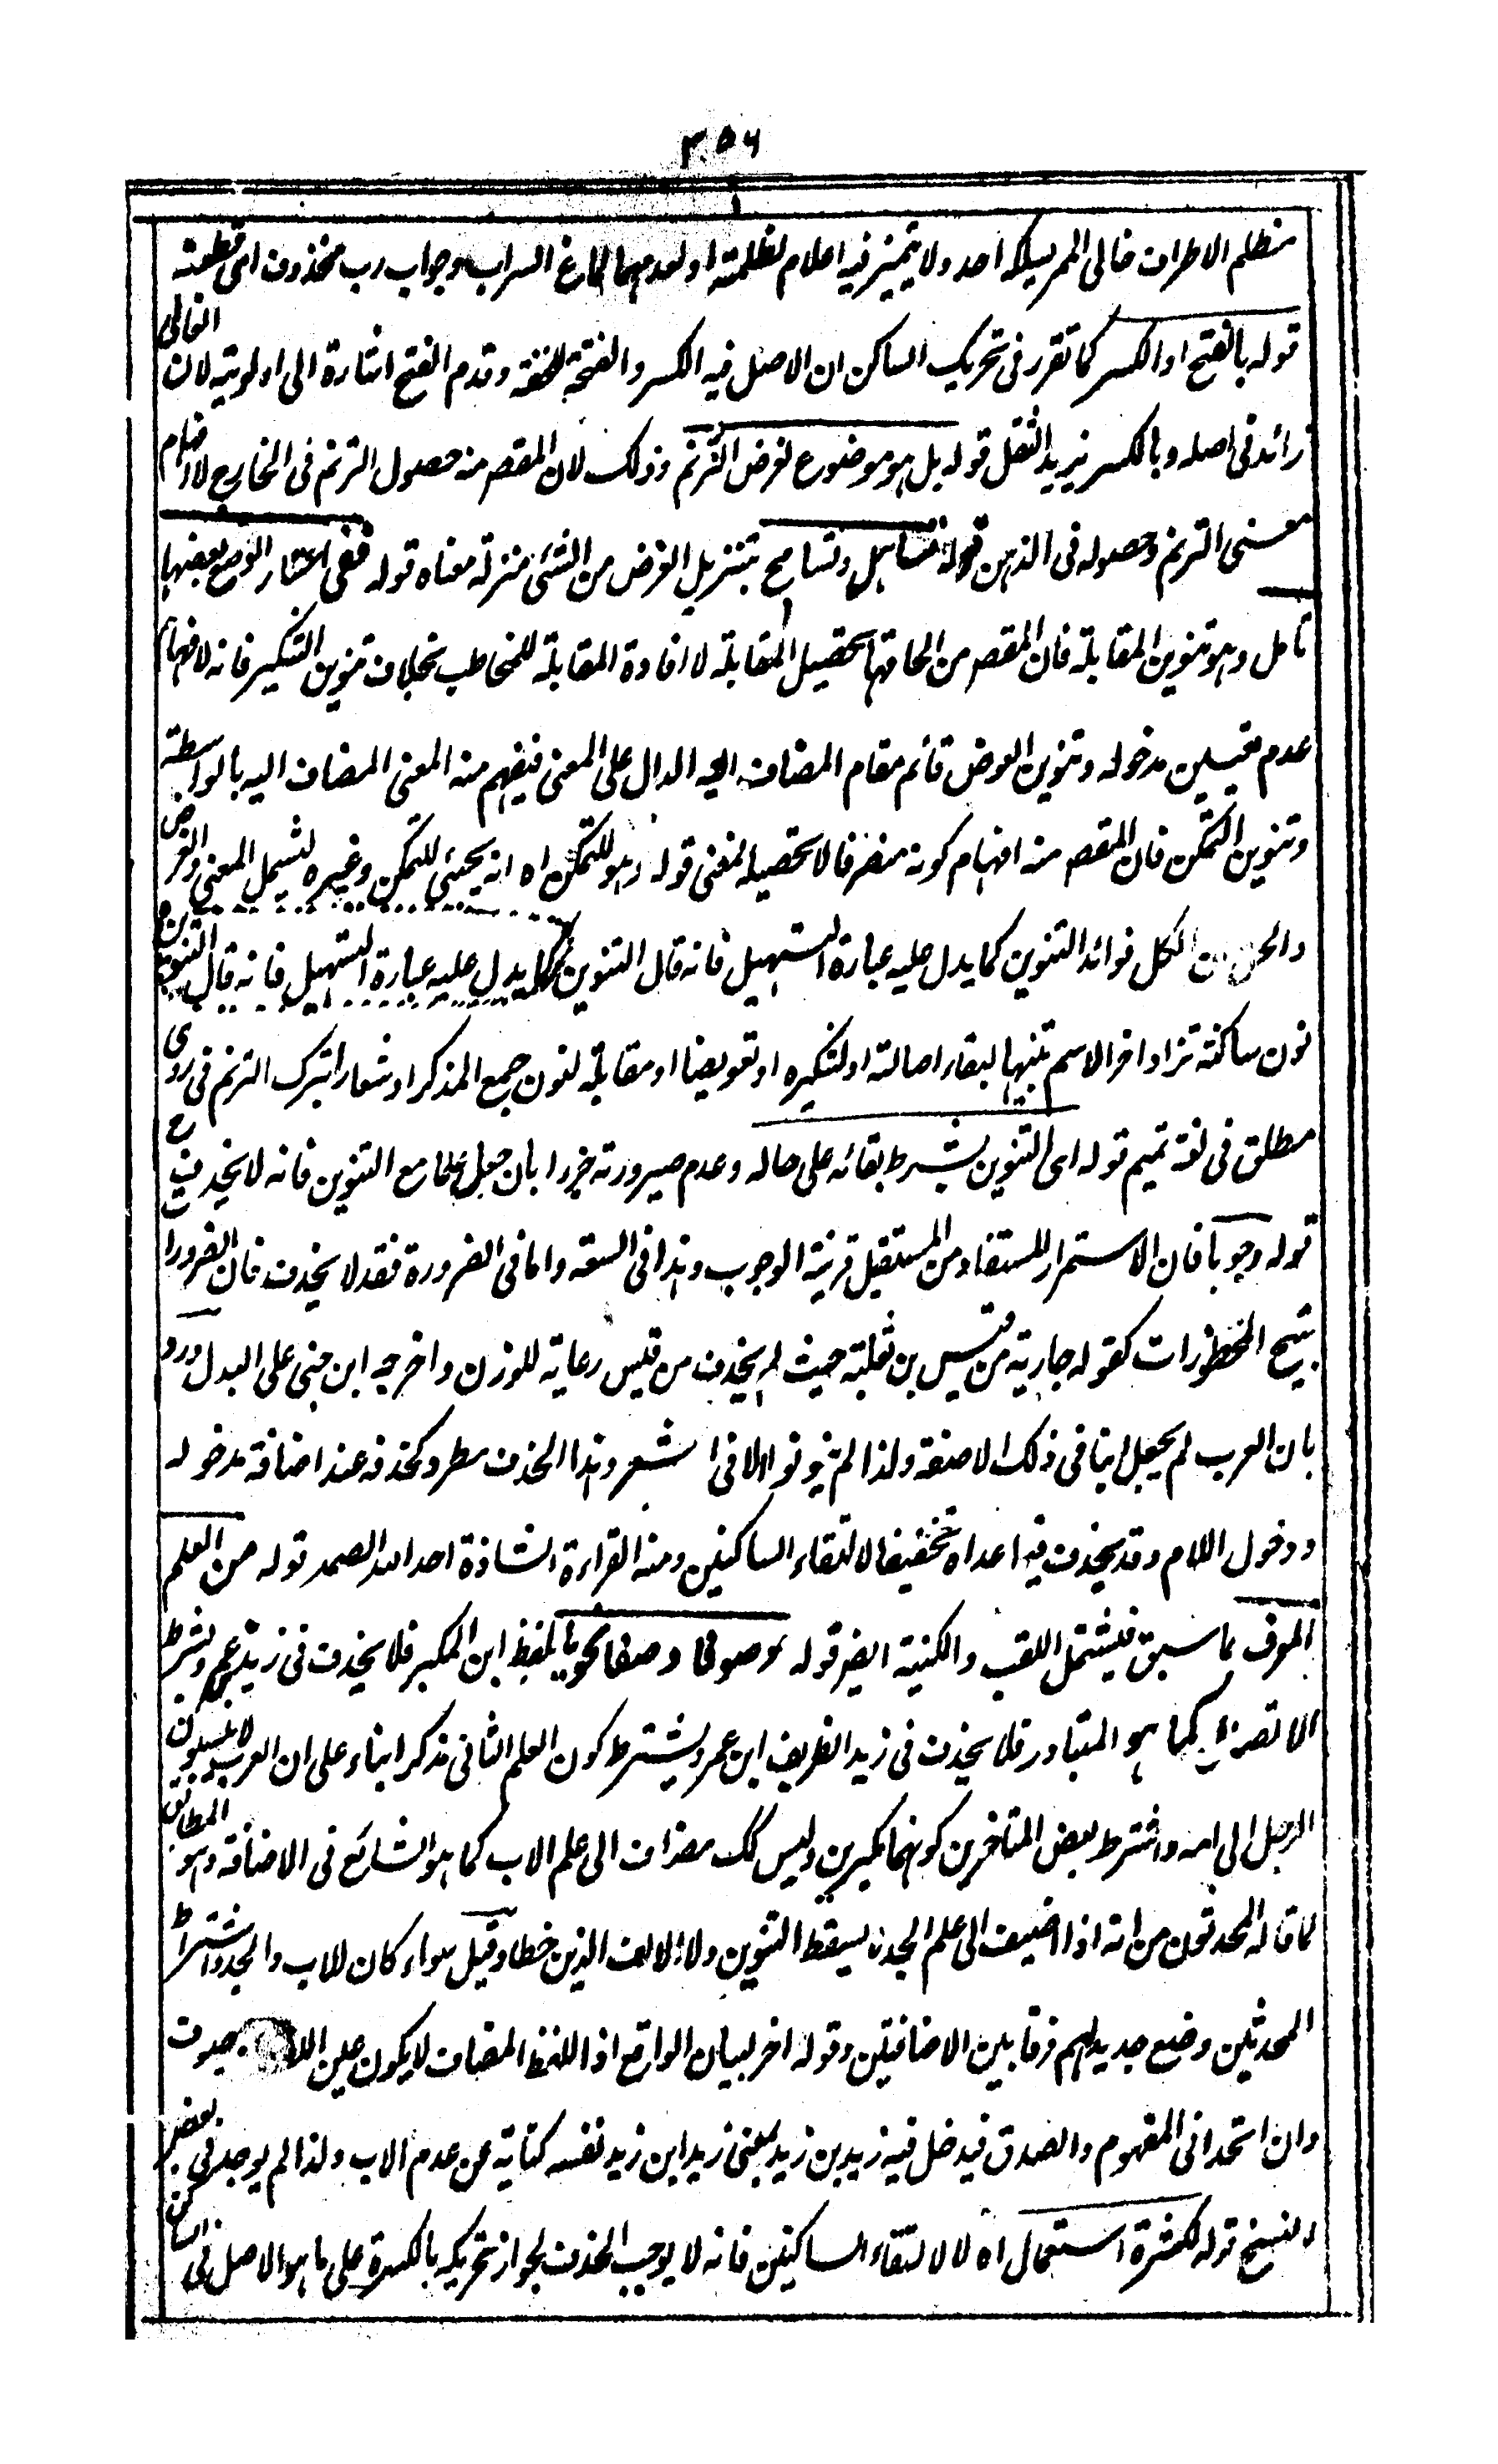 ٣٥٦
منظلم الاطراف خالى الممر يسلكه احد ولا يتميز فيه اعلام لظلمته او لعدمها لماع السراب وجواب رب محذوف اى قطعته
قوله بالفتح او الكسر كما تقرر فى تحريك الساكن ان الاصل فيه الكسر والفتحة للخفة وقدم الفتح اشارة الى اولويته لان الغالى
زائد فى اصله وبالكسر يزيد الثقل قوله بل هو موضوع لغرض الترنم وذلك لان المقصر منه حصول الترنم فى الخارج لا افهام
معنى الترنم وحصوله فى الذهن قوله تساهل وتسامح بتنزيل الغرض من الشئ منزلة معناه قوله ففى اعتبار الوضع بعضها
تامل وهو تنوين المقابلة فان المقصر من الحاقها تحصيل المقابلة لا افادة المقابلة للمخاطب بخلاف تنوين التنكير فانه لافهام
عدم تعيين مدخوله وتنوين العوض قائم مقام المضاف اليه الدال على المعنى فيفهم منه المعنى المضاف اليه بالواسطة
وتنوين التمكن فان المقصر منه افهام كونه منصرفا لا تحصيله لمعنى قوله وهو للتمكن اه انه يجئ للتمكن وغيره ليشمل المعنى والغرض
والحق ان الكل فوائد التنوين كما يدل عليه عبارة التسهيل فانه قال التنوين كما يدل عليه عبارة التسهيل فانه قال التنوين
نون ساكنة تزاد اخر الاسم تنبيها لبقاء اصالته او لتنكيره او تعويضا او مقابلة لنون جمع المذكر او شعارا بترك الترنم فى روى
مطلق فى لغة تميم قوله اى التنوين بشرط بقائه على حاله وعدم صيرورته جزءا بان جعل علما مع التنوين فانه لا يحذف ح
قوله وجوبا فان الاستمرار المستفاد من المستقبل قرينة الوجوب وهذا فى السعة واما فى الضرورة فقد لا يحذف فان الضرورات
تبيح المحظورات كقوله جارية من قيس بن ثعلبة حيث لم يحذف من قيس رعاية للوزن واخرجه ابن جنى على البدل ورد
بان العرب لم يجعل ابنا فى ذلك الا صفة ولذا لم ينونوا الا فى الشعر وهذا الحذف مطرد كحذفه عند اضافة مدخوله
ودخول اللام وقد يحذف فيما عداه تخفيفا لالتقاء الساكنين ومنه القراءة الشاذة احد الله الصمد قوله من العلم
المعرف بما سبق فيشتمل اللقب والكنية ايضر قوله موصوفا وصفا نحويا بلفظ ابن المكبر فلا يحذف فى زيد بنى عمرو بشرط
الاتصال كما هو المتبادر فلا يحذف فى زيد الظريف ابن عمرو يشترط كون العلم الثانى مذكرا بناء على ان العرب لا ينسبون
الرجل الى امه واشترط بعض المتاخرين كونهما مكبرين وليس كك مضاف الى علم الاب كما هو الشائع فى الاضافة وهو المطابق
لما قاله المحدثون من انه اذا اضيف الى علم الجد لا يسقط التنوين ولا الالف الذين خطا وقيل سواء كان للاب والجد واشتراط
المحدثين وضع جديد لهم فرقا بين الاضافتين وقوله اخر لبيان الواقع اذ اللفظ المضاف لا يكون عين
وان اتحدا فى المفهوم والصدق فيدخل فيه زيد بن زيد بمعنى زيد ابن زيد نفسه كناية عن عدم الاب ولذا لم يوجد فى بعض
النسخ قوله لكثرة استعمال اه لا لالتقاء الساكنين فانه لا يوجب الحذف لجواز تحريكه بالكسرة على ما هو الاصل فى الساكن